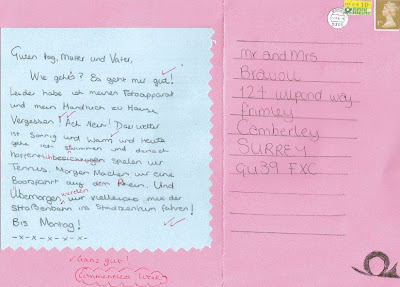 Guten tag, Mutter und Vater,
Wie geht's? Es geht mir gut!
Leider habe ich meinen Fotoapparat
und mein Handtuch zu Hause
Vergessen! Ach Nein! Das wetter
ist Sonnig und Warm und Heute
gehe ich schwimmen und danach
spielen wir
Tennis. Morgen Machen wir eine
Bootsfahrt auf dem Rhein. Und
Übermorgen, werden wir vielleicht mit der
Straßenbahn ins Stadtzentrum fahren!
Bis Montag!
-x-x-x-x-x-
Ganz gut!
Commended Work
Mr and Mrs
124 Wilpond way
Frimley
Camberley
SURREY
GU39 FXC